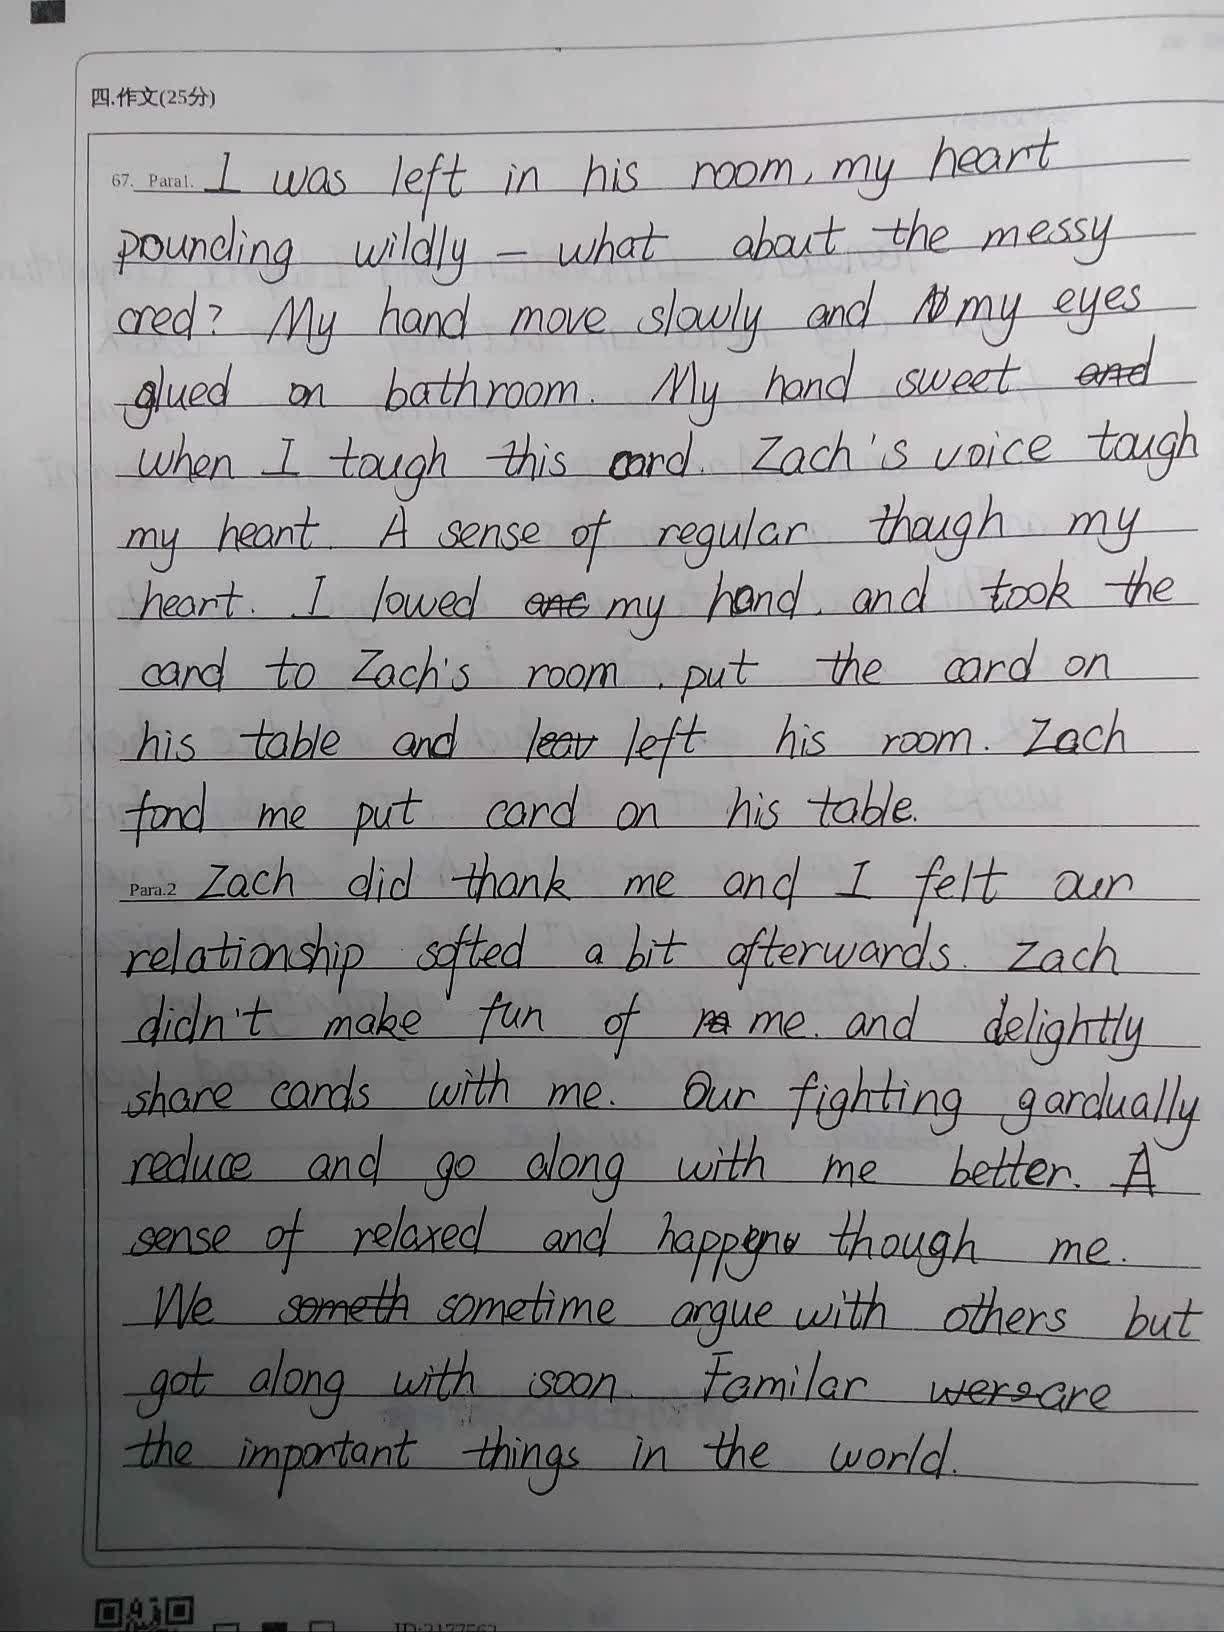 四.作文(25分)
67. Para1. I was left in his room, my heart
pounding wildly – what about the messy
cred? My hand move slowly and my eyes
glued on bathroom. My hand sweet and
when I tough this card. Zach's voice tough
my heart. A sense of regular though my
heart. I lowed one my hand, and took the
card to Zach's room, put the card on
his table and leav left his room. Zach
fond me put card on his table.
Para.2 Zach did thank me and I felt our
relationship softed a bit afterwards. Zach
didn't make fun of me. and delightly
share cards with me. Our fighting gardually
reduce and go along with me better. A
sense of relaxed and though me.
We someth sometime argue with others but
got along with soon. Familar were are
the important things in the world.